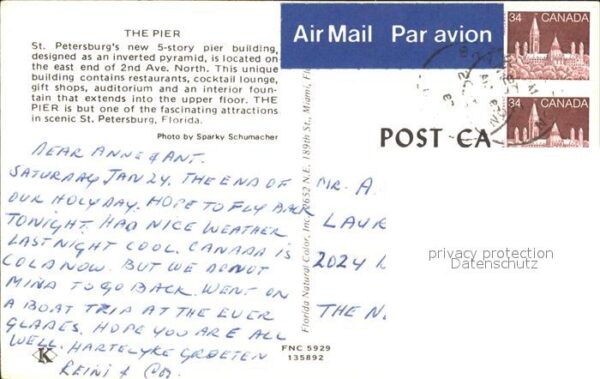 THE PIER
St. Petersburg's new 5-story pier building,
designed as an inverted pyramid, is located on
the east end of 2nd Ave. North. This unique
building contains restaurants, cocktail lounge,
gift shops, auditorium and an interior foun-
tain that extends into the upper floor. THE
PIER is but one of the fascinating attractions
in scenic St. Petersburg, Florida.
Photo by Sparky Schumacher
DEAR ANNE & ANT.
SATURDAY JAN 24. THE END OF
OUR HOLYDAY. HOPE TO FLY BACK
TONIGHT. HAD NICE WEATHER
LAST NIGHT COOL. CANADA IS
COLD NOW. BUT WE DO NOT
MIND TO GO BACK. WENT ON
A BOAT TRIP AT THE EVER
GLADES. HOPE YOU ARE ALL
WELL. HARTELYKE GROETEN
REINI &
K
FNC 5929
135892
Florida Natural Color, Inc., 2652 N.E. 189th St., Miami, Fl
Air Mail Par avion
34 CANADA
34 CANADA
POST CA
MR. A
LAUR
2024
THE N.
privacy protection
Datenschutz